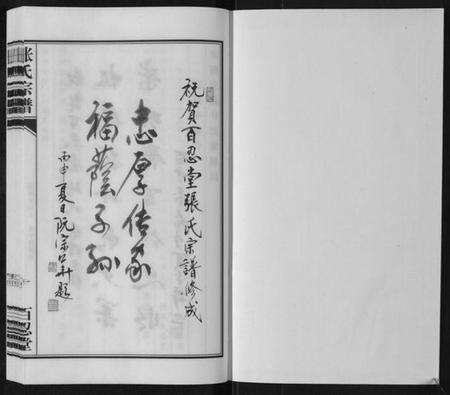 祝賀百忍堂張氏宗譜修成
忠厚传家
福蔭子孙
丙申夏日阮宗
题
张氏宗譜
百忍堂